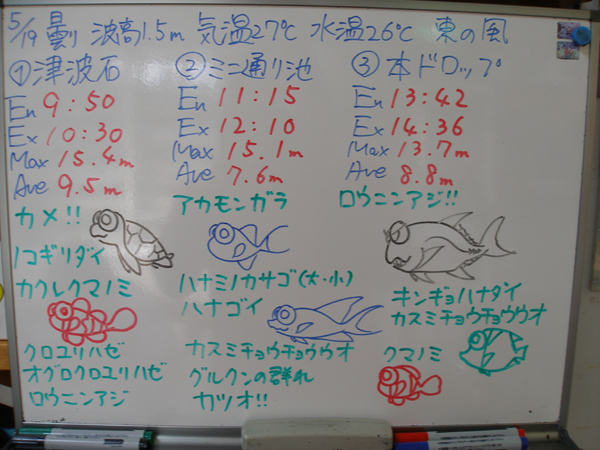 5/19 曇り 波高1.5m 気温27℃ 水温26℃ 東の風
①津波石
En 9:50
Ex 10:30
Max 15.4m
Ave 9.5m
カメ!!
ノコギリダイ
カクレクマノミ
クロユリハゼ
オグロクロユリハゼ
ロウニンアジ
②ミニ通り池
En 11:15
Ex 12:10
Max 15.1m
Ave 7.6m
アカモンガラ
ハナミノカサゴ(大・小)
ハナゴイ
カスミチョウチョウウオ
グルクンの群れ
カツオ!!
③本ドロップ
En 13:42
Ex 14:36
Max 13.7m
Ave 8.8m
ロウニンアジ!!
キンギョハナダイ
カスミチョウチョウウオ
クマノミ